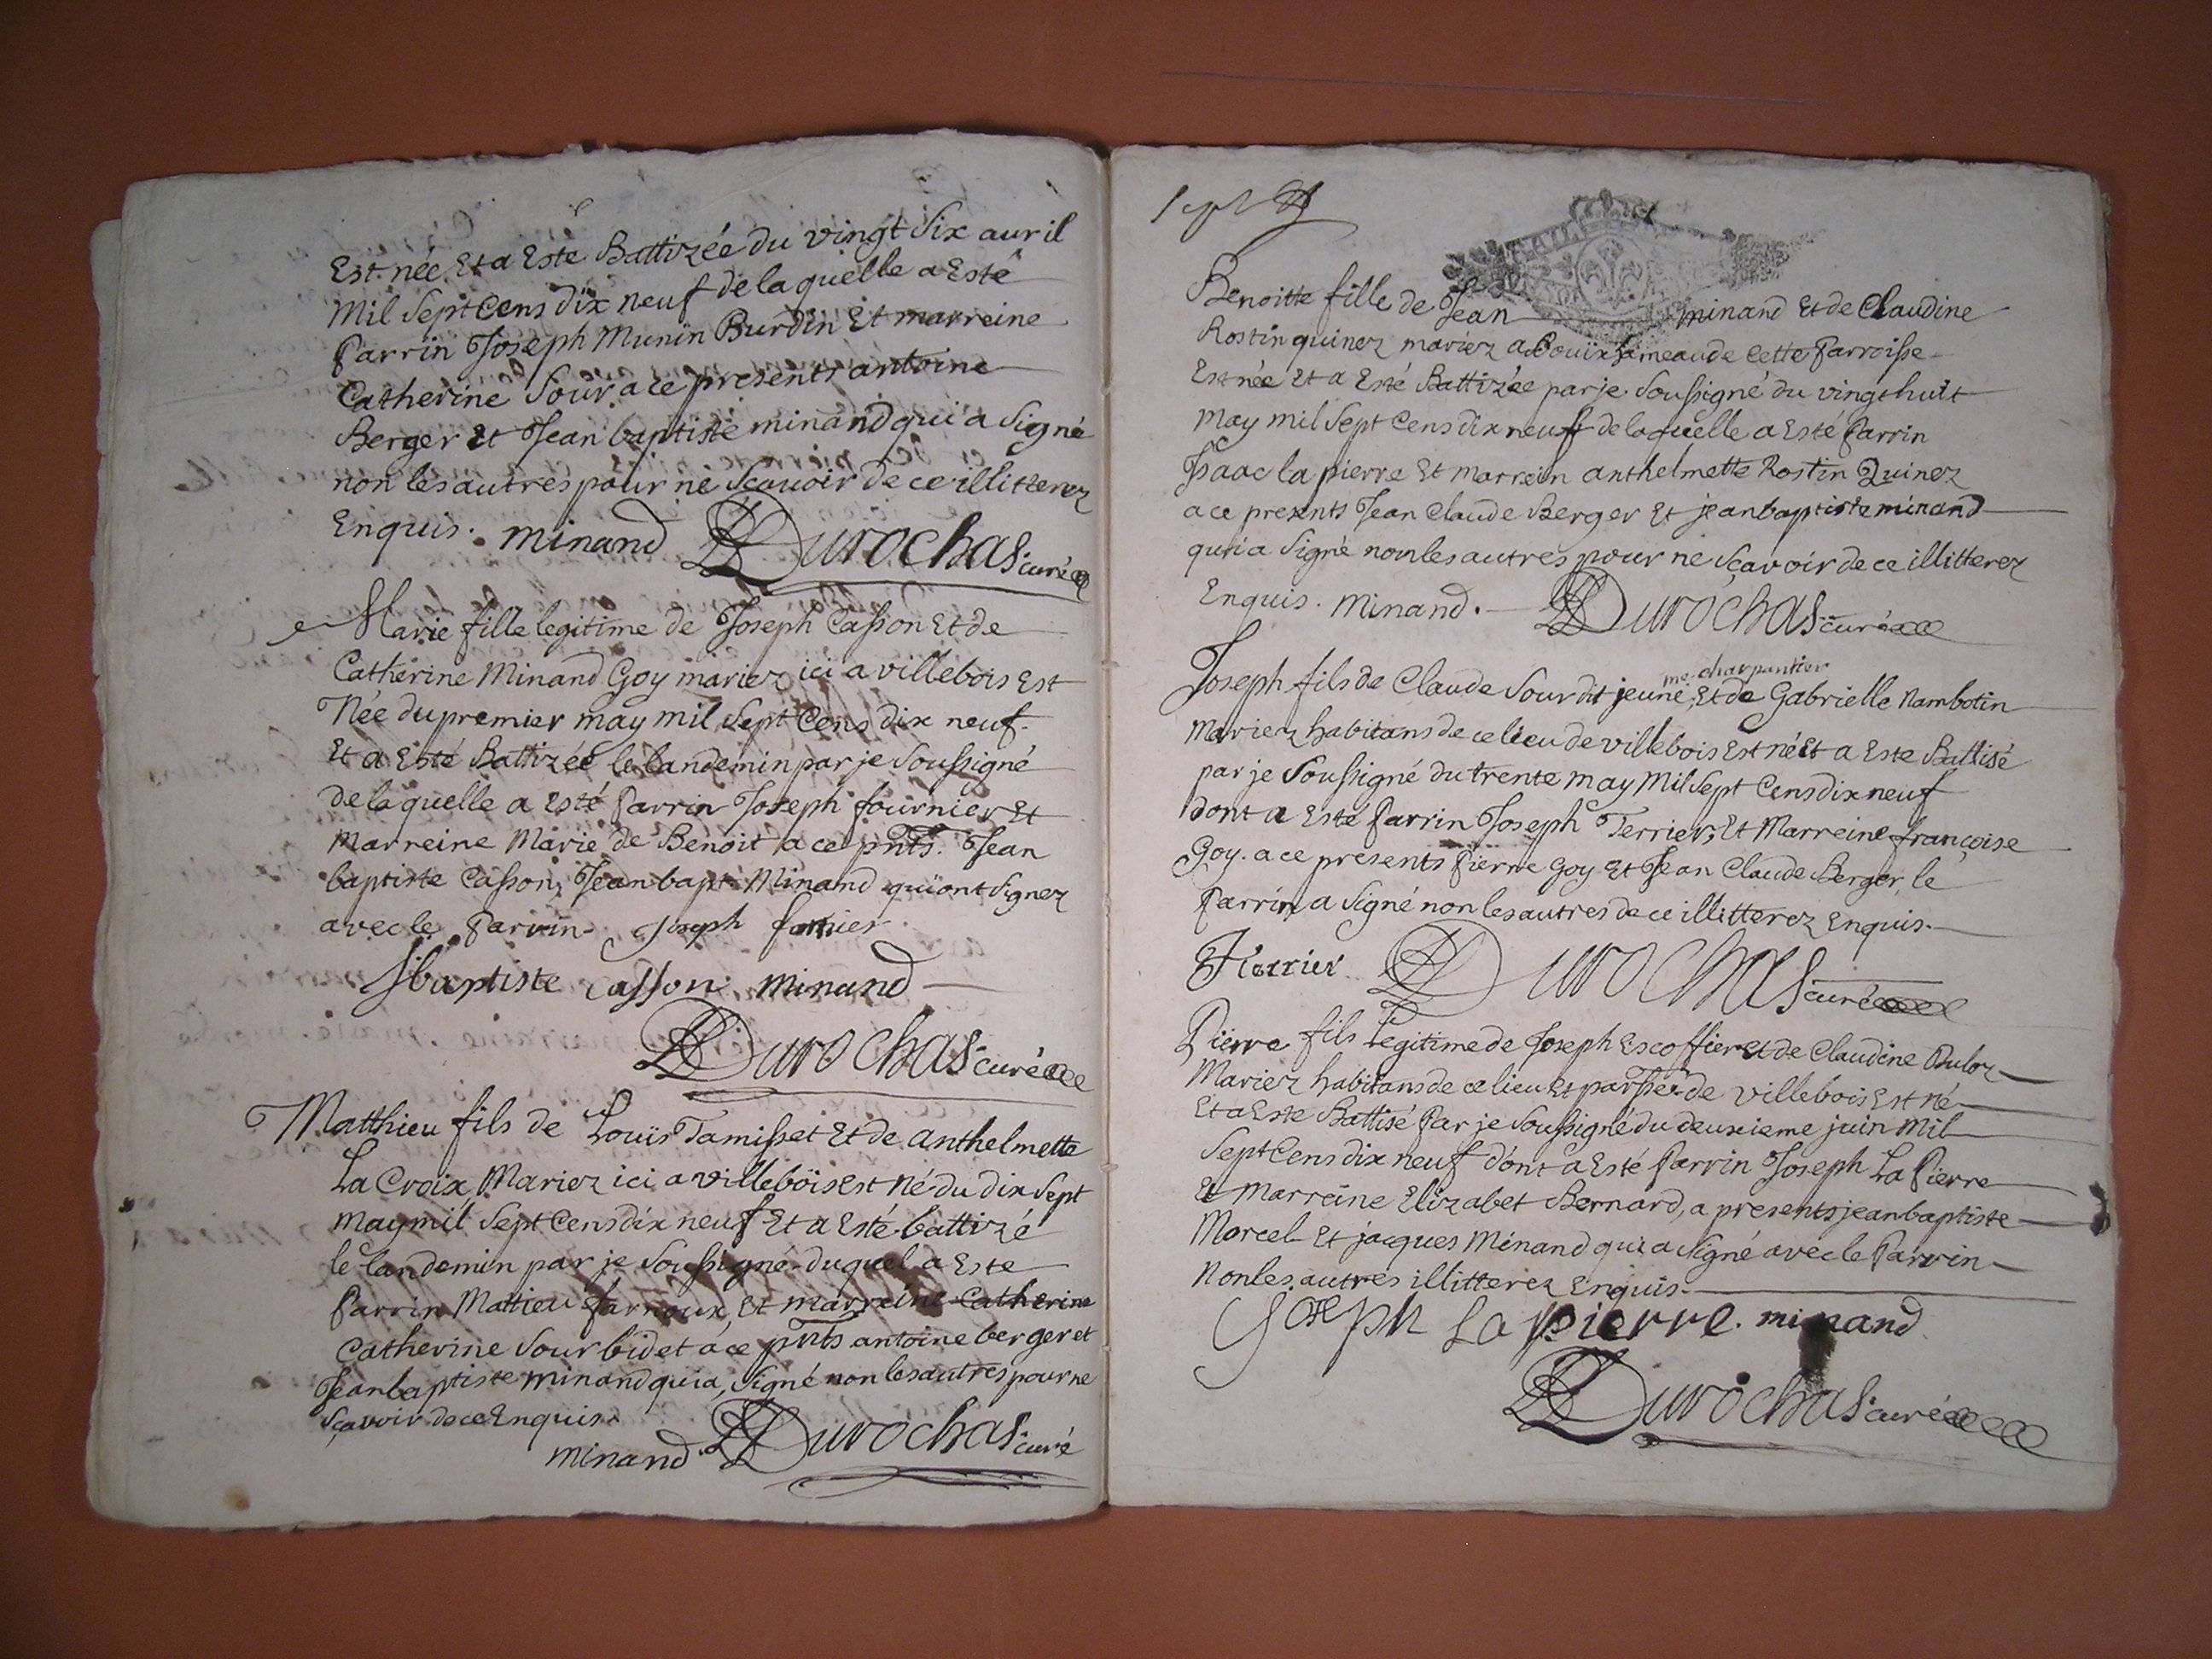 Est née Et a Esté Battizée du vingt six auril
Mil Sept Cens dix neuf de laquelle a Esté
Parrin Joseph Munin Burdin Et marreine
Catherine Sour a ce presents antoine
Berger Et Jean baptiste minand qui a Signé
non les autres pour ne Scauoir de ce illiterez
Enquis. minand Durochas curé
Marie fille legitime de Joseph Casson Et de
Catherine Minand Goy mariez ici a villebois Est
Née du premier may mil Sept Cens dix neuf
Et a Esté Battizée le landemin par je Soussigné
de laquelle a Esté Parrin Joseph fournier Et
Marreine Marie de Benoit a ce pnts. Jean
baptiste Casson, Jean bapt. Minand qui ont Signez
avec le Parrin Joseph
Jbaptiste Casson minand
Durochas curé
Matthieu fils de Louïs Tamisset Et de anthelmette
La Croix Mariez ici a villeboïs Est né du dix Sept
may mil Sept Cens dix neuf Et a Esté battizé
le landemin par je Soussigné duquel a Este
Parrin Mattieu Et marreine Catherine
Catherine Sourbidet a ce pnts antoine berger et
Jean baptiste minand qui a Signé non les autres pour ne
Sçavoir de ce Enquis
minand Durochas curé
Benoitte fille de Jean minand Et de Claudine
Rostin quinez mariez a Bouïx hameau de Cette Parroisse
Est née Et a Esté Battizée par je Soussigné du vingt huit
May mil Sept Cens dix neuf de laquelle a Esté Parrin
Isaac la pierre Et marrein anthelmette Rostin Quinez
a ce presents Jean Claude Berger Et jean baptiste minand
qui a Signé non les autres pour ne Sçavoir de ce illitterez
Enquis. Minand. Durochas curé
me. charpantier
Joseph fils de Claude Sour dit jeune, Et de Gabrielle Nambotin
Mariez habitans de ce lieu de villebois Est né Et a Este Battisé
par je Soussigné du trente may Mil Sept Cens dix neuf
dont a Esté Parrin Joseph Terrier, Et Marreine françoise
Goy. a ce presents Pierre Goy Et Jean Claude Berger, le
Parrin a Signé non les autres de ce illitterez Enquis.
Durochas curé
Pierre fils Legitime de Joseph Escoffier et de Claudine Duloz
Mariez habitans de ce lieu Et parsse de villebois Est né
Et a Este Battisé Par je Soussigné du deuxieme juin Mil
Sept Cens dix neuf dont a Esté Parrin Joseph La Pierre
Et Marreine Elizabet Bernard, a presents jean baptiste
Morcel Et jacques Minand qui a Signé avec le Parrin
Non les autres illitterez Enquis.
Joseph La pierre. minand
Durochas curé